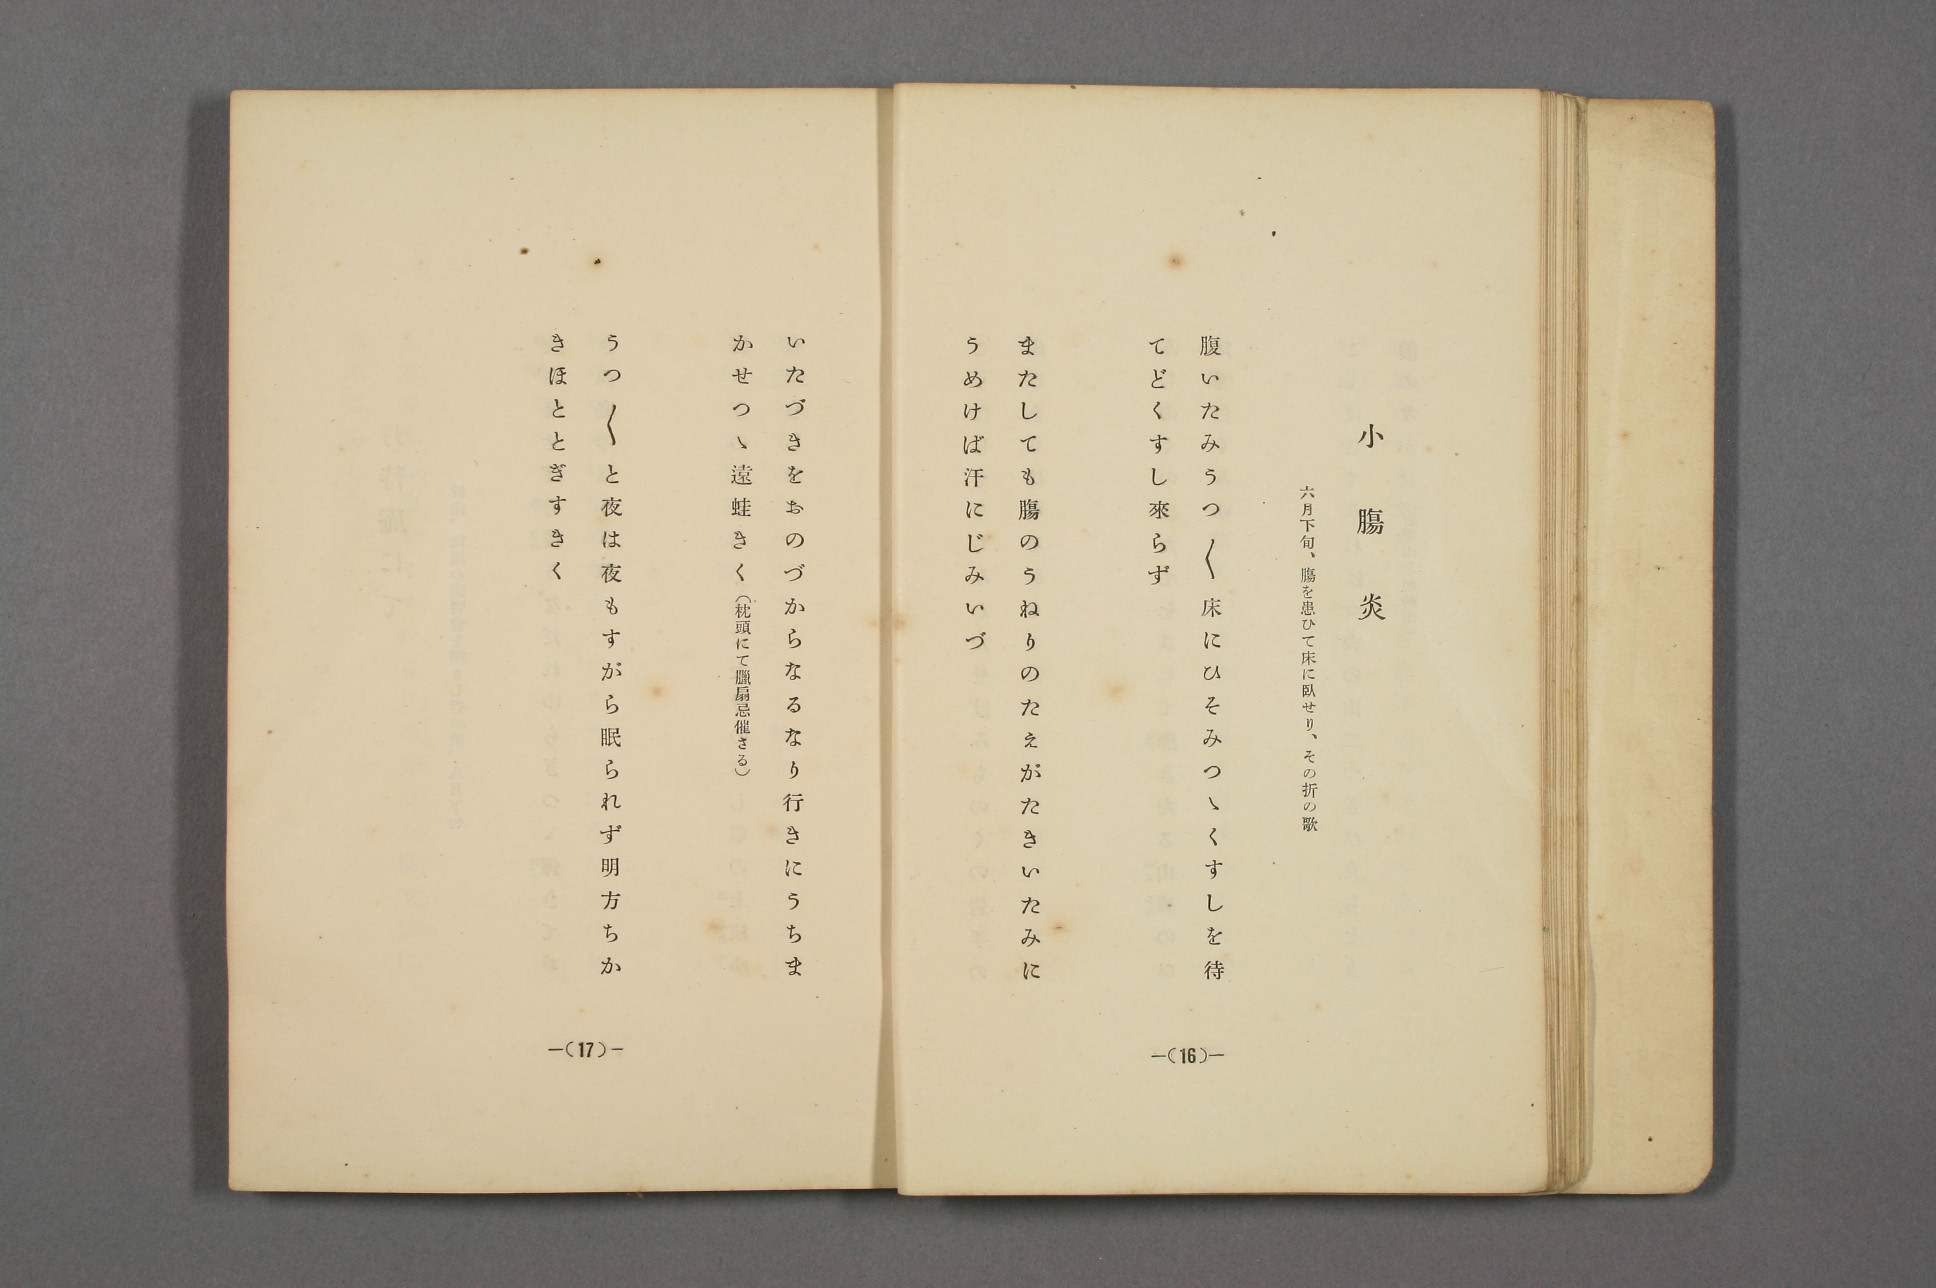 小腸炎
六月下旬、腸を患ひて床に臥せり、その折の歌
腹いたみうつ〱床にひそみつゝくすしを待
てどくすし來らず
またしても腸のうねりのたえがたきいたみに
うめけば汗にじみいづ
—(16)—
いたづきをおのづからなるなり行きにうちま
かせつゝ遠蛙きく(枕頭にて臘扇忌催さる)
うつ〱と夜は夜もすがら眠られず明方ちか
きほととぎすきく
—(17)—